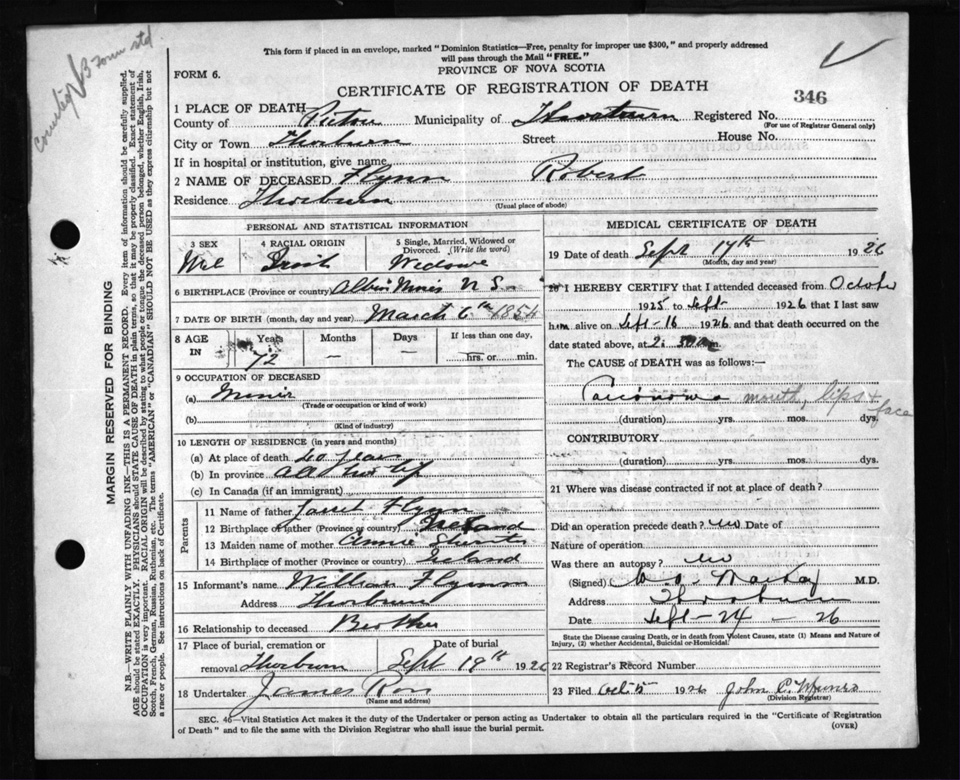 This form if placed in an envelope, marked "Dominion Statistics—Free, penalty for improper use $300," and properly addressed
will pass through the Mail "FREE."
PROVINCE OF NOVA SCOTIA
FORM 6.
CERTIFICATE OF REGISTRATION OF DEATH
346
1 PLACE OF DEATH
County of Pictou Municipality of Registered No.
(For use of Registrar General only)
City or Town Thorburn Street House No.
If in hospital or institution, give name
2 NAME OF DECEASED Flynn Robert
Residence Thorburn
(Usual place of abode)
PERSONAL AND STATISTICAL INFORMATION
3 SEX 4 RACIAL ORIGIN 5 Single, Married, Widowed or Divorced. (Write the word)
Mel Irish Widowe
6 BIRTHPLACE (Province or country) Albion Mines N S
7 DATE OF BIRTH (month, day and year) March 6th 1854
8 AGE IN Years Months Days If less than one day,
72 — — hrs. or min.
9 OCCUPATION OF DECEASED
(a) Miner
(Trade or occupation or kind of work)
(b)
(Kind of industry)
10 LENGTH OF RESIDENCE (in years and months)
(a) At place of death 60 years
(b) In province all his lif
(c) In Canada (if an immigrant)
Parents
11 Name of father Flynn
12 Birthplace of father (Province or country) Ireland
13 Maiden name of mother Annie
14 Birthplace of mother (Province or country) Ireland
15 Informant's name William Flynn
Address Thorburn
16 Relationship to deceased Brother
17 Place of burial, cremation or Date of burial
removal Thorburn Sept 19th 1926
18 Undertaker James Ross
(Name and address)
MEDICAL CERTIFICATE OF DEATH
19 Date of death Sept 17th 1926
(Month, day and year)
20 I HEREBY CERTIFY that I attended deceased from October
1925 to Sept 1926 that I last saw
him alive on Sept-16 1926 and that death occurred on the
date stated above, at 2.
The CAUSE of DEATH was as follows:—
Carcinoma mouth, lips + face
(duration) yrs. mos. dys.
CONTRIBUTORY
(duration) yrs. mos. dys.
21 Where was disease contracted if not at place of death?
Did an operation precede death? no Date of
Nature of operation
Was there an autopsy? no
(Signed) MacKay M.D.
Address Thorburn
Date Sept-24-26
State the Disease causing Death, or in death from Violent Causes, state (1) Means and Nature of
Injury, (2) whether Accidental, Suicidal or Homicidal.
22 Registrar's Record Number
23 Filed Oct 5 1926 John C. Munro
(Division Registrar)
SEC. 46—Vital Statistics Act makes it the duty of the Undertaker or person acting as Undertaker to obtain all the particulars required in the "Certificate of Registration
of Death" and to file the same with the Division Registrar who shall issue the burial permit.
(OVER)
MARGIN RESERVED FOR BINDING
N.B.—WRITE PLAINLY WITH UNFADING INK—THIS IS A PERMANENT RECORD. Every item of information should be carefully supplied.
AGE should be stated EXACTLY. PHYSICIANS should STATE CAUSE OF DEATH in plain terms, so that it may be properly classified. Exact statement of
OCCUPATION is very important. RACIAL ORIGIN will be described by stating to what people or tongue the deceased person belonged, whether English, Irish,
Scotch, French, German, Russian, Ruthenian, etc. The terms "AMERICAN" or "CANADIAN" SHOULD NOT BE USED as they express citizenship but not
a race or people. See instructions on back of Certificate.